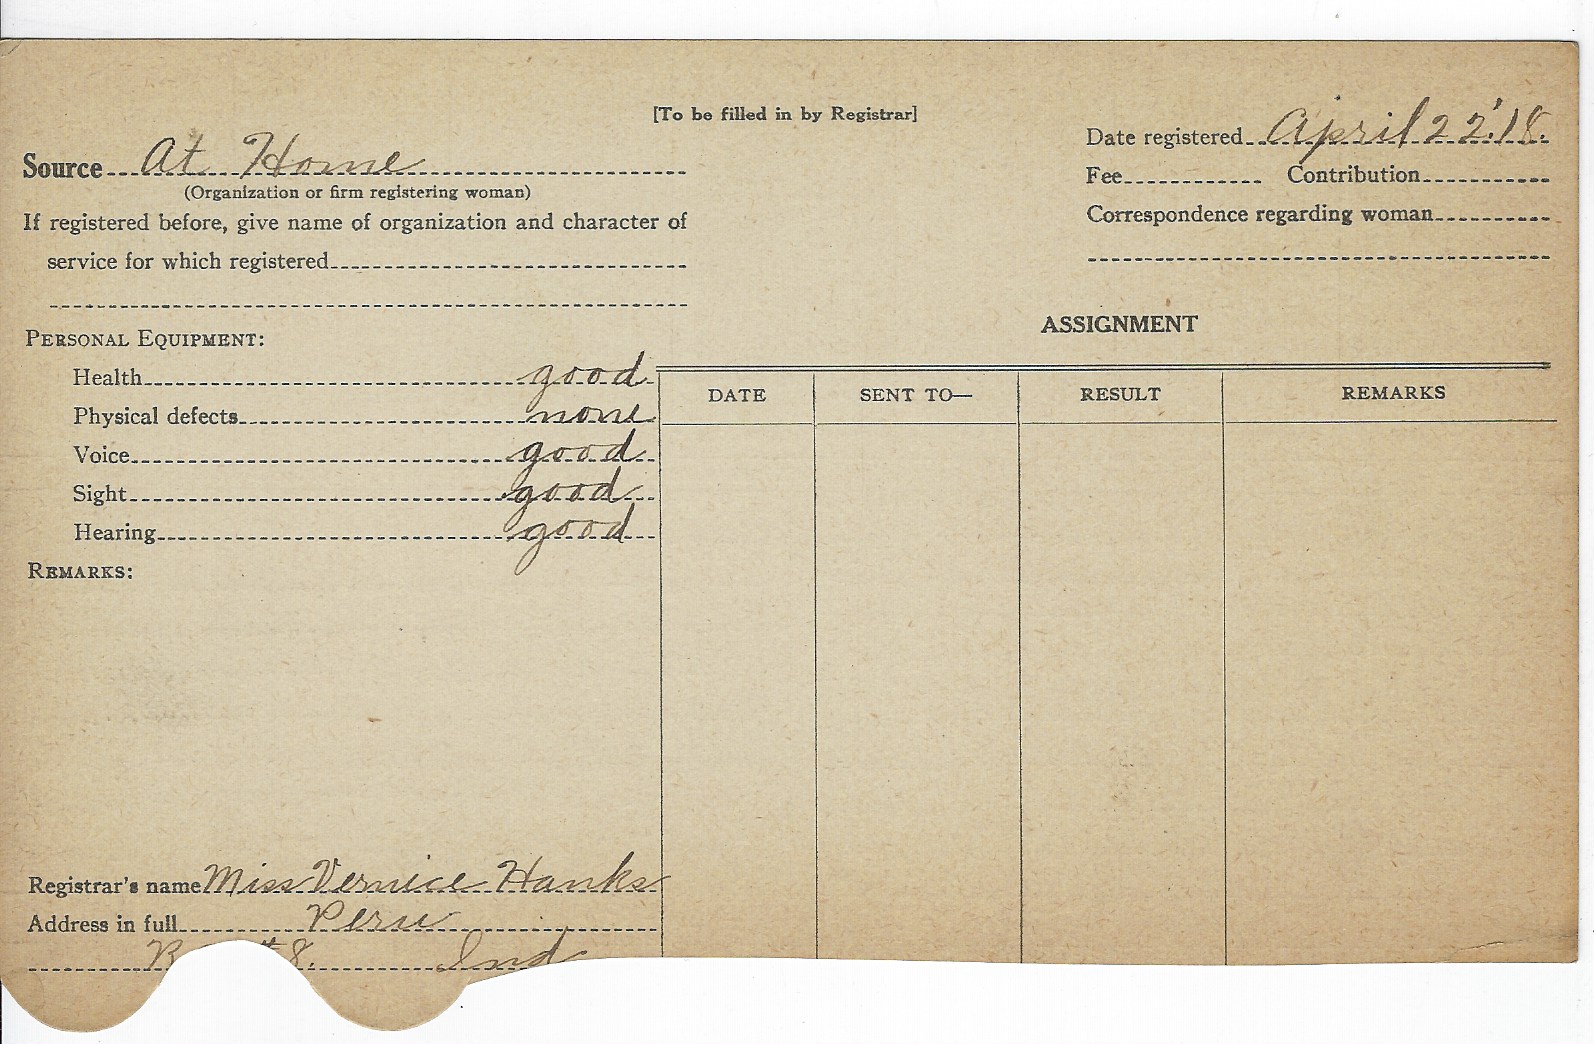 [To be filled in by Registrar]
Source At Home
(Organization or firm registering woman)
If registered before, give name of organization and character of
service for which registered
Date registered April 22.'18.
Fee Contribution
Correspondence regarding woman
PERSONAL EQUIPMENT:
Health good
Physical defects none
Voice good
Sight good
Hearing good
REMARKS:
ASSIGNMENT
DATE SENT TO— RESULT REMARKS
Registrar's name Miss Vernice Hanks
Address in full Peru
8. Ind